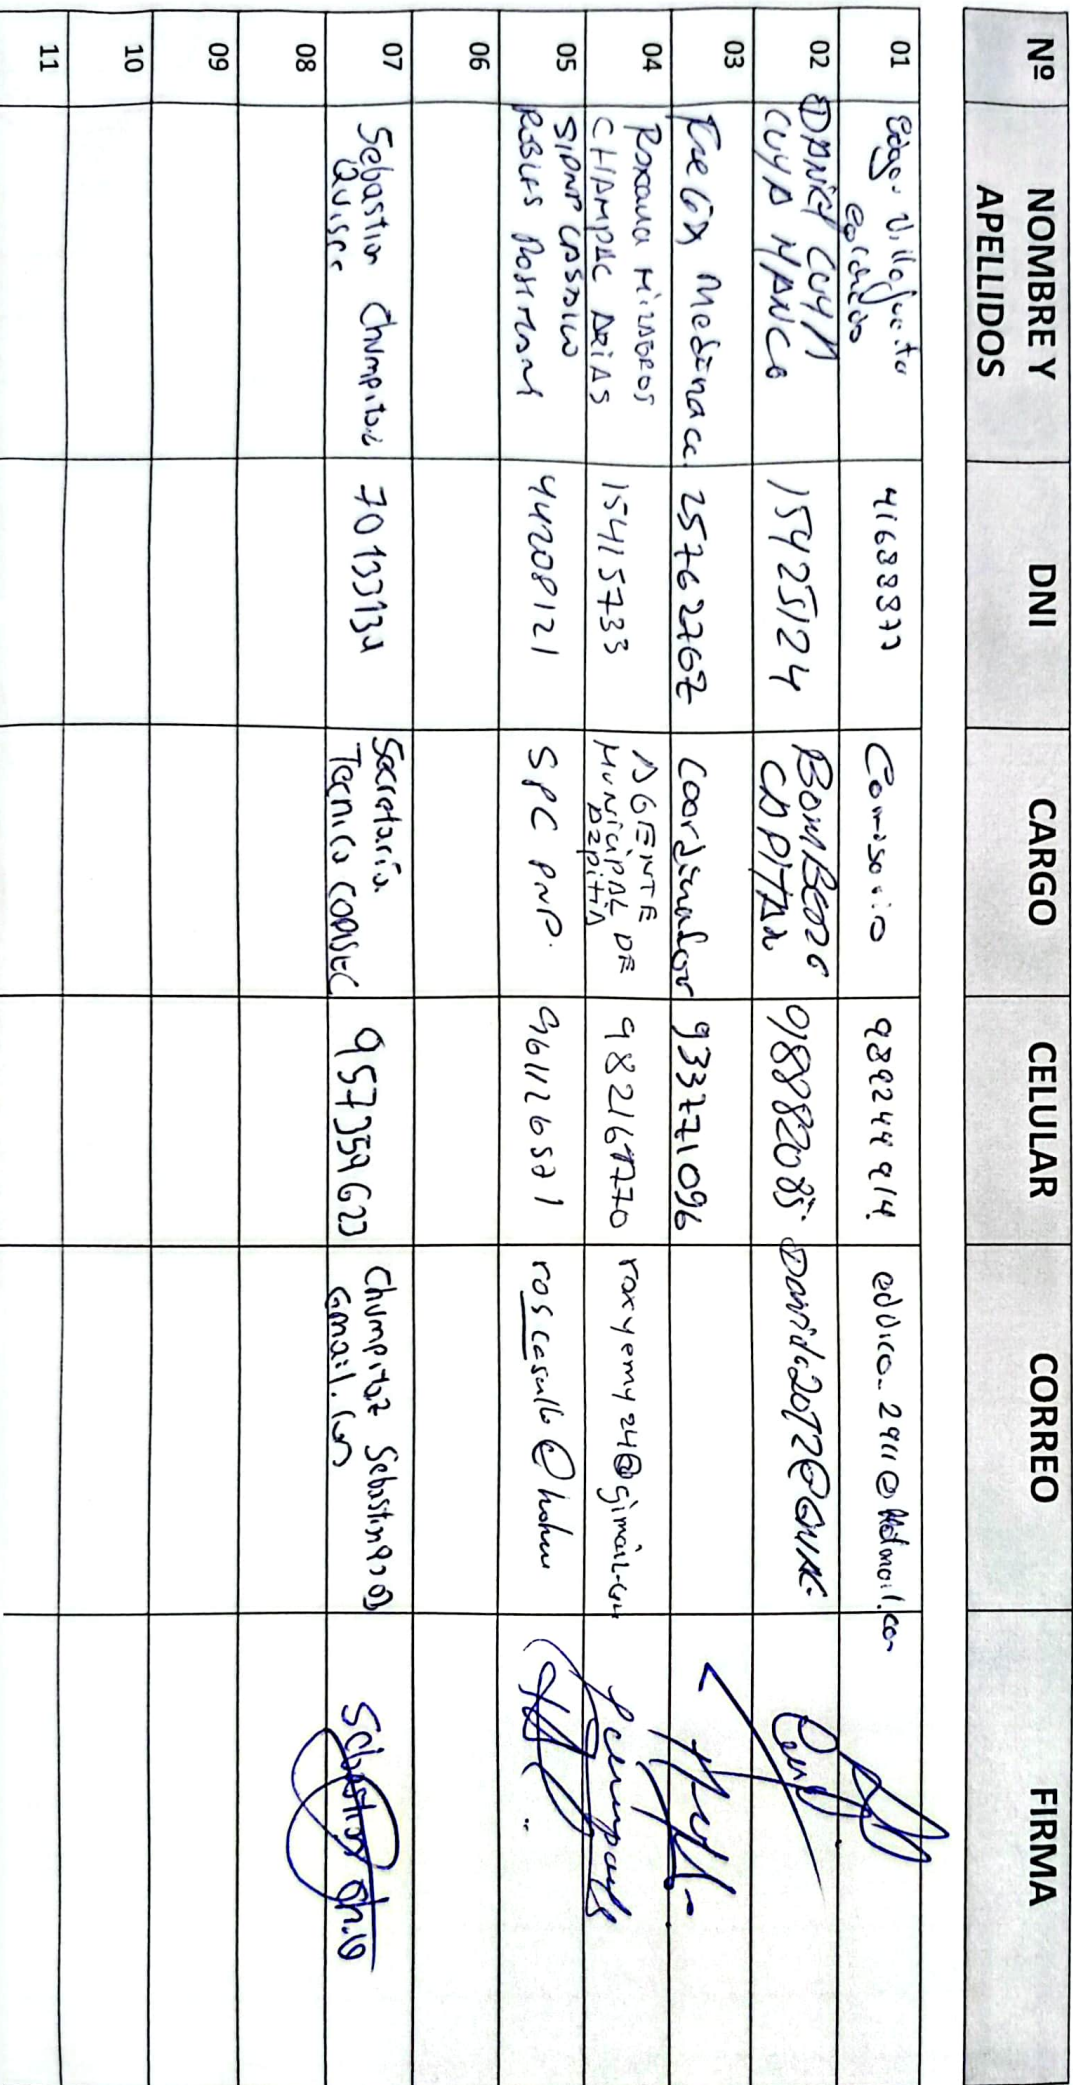 Nº NOMBRE Y APELLIDOS DNI CARGO CELULAR CORREO FIRMA
01 Edgar Villafuerte 41688377 Comisario 989244914 edvica_2911@Hotmail.com
02 DANIEL CUYA CUYA MANCO 15425124 BOMBERO CAPITAN 988882085
03 Medina 25762767 Coordinador 933771096
04 ROXANA MILAGROS CHAMPAC ARIAS 15415733 AGENTE MUNICIPAL DE AZPITIA 982167770 roxyemy24@gimail.com
05 ROBLES 44208121 SPC PNP. 961126571
06
07 Sebastian Chumpitaz Quispe 70133134 Secretaria Tecnica CODISEC 957359623 Chumpitaz Sebastian Gmail.com
08
09
10
11